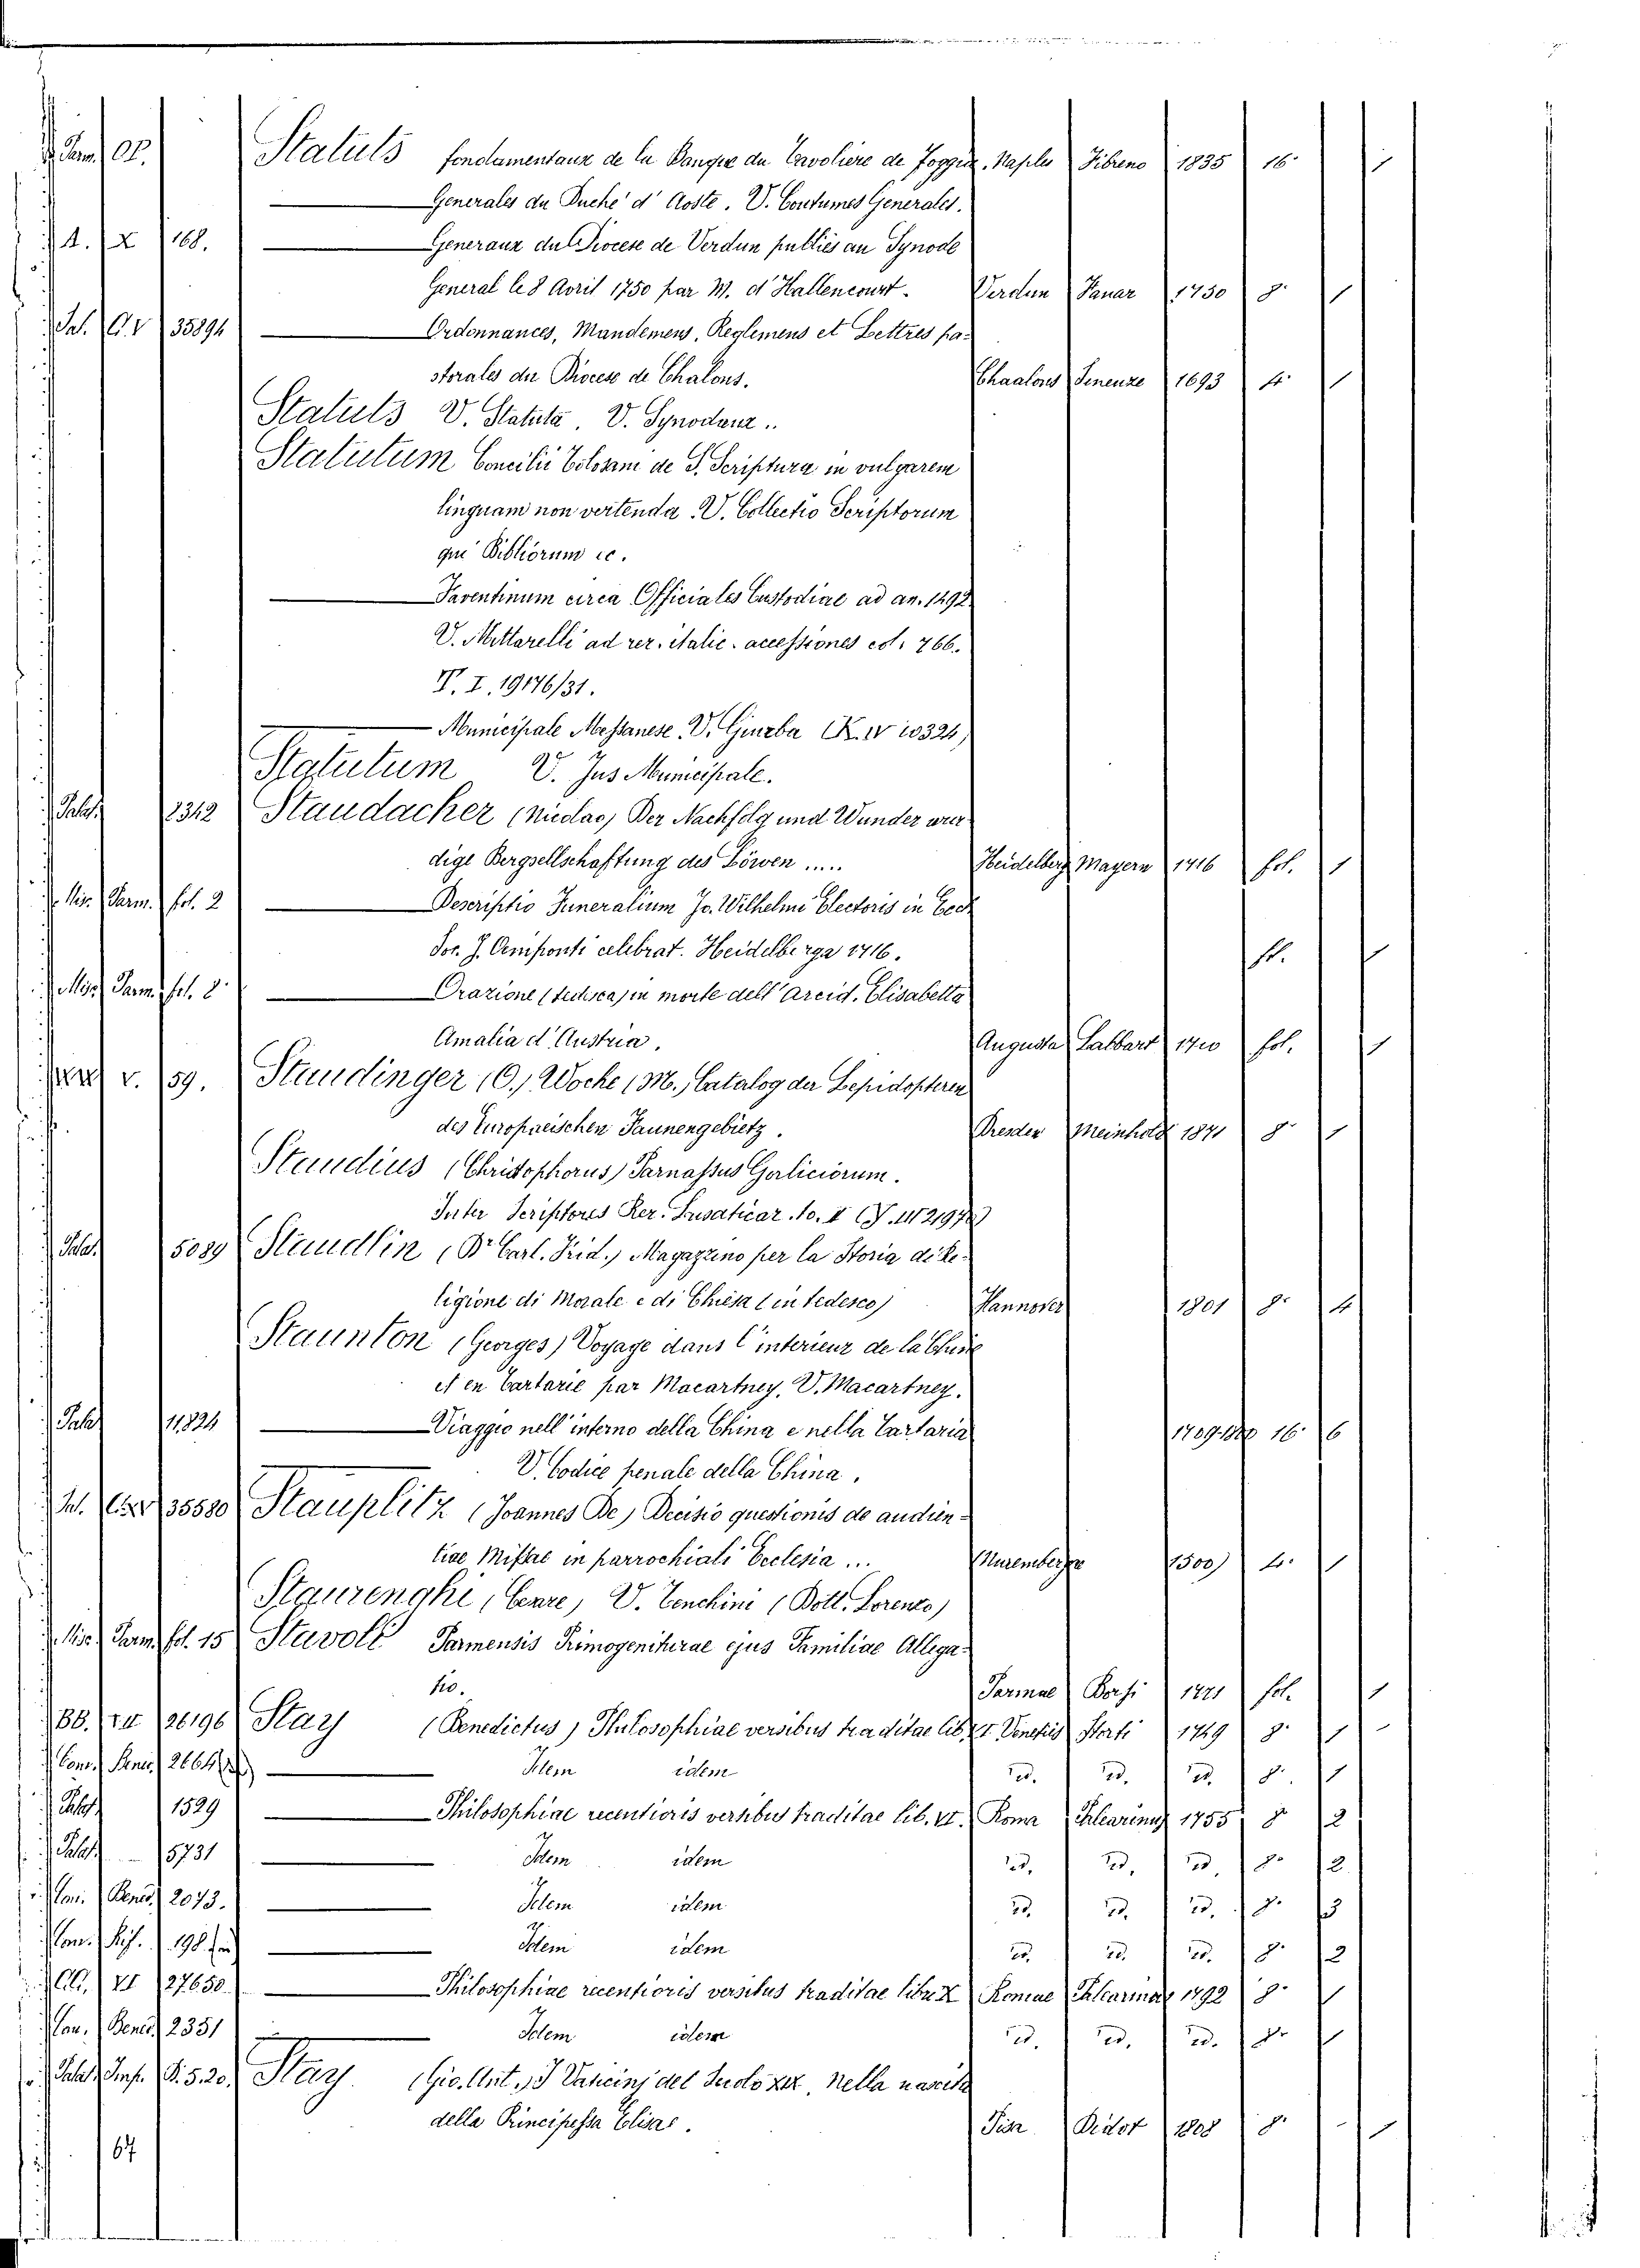 Statuts fondamentaux de la Banque du Tavoliere de Foggia. Naples Fibreno 1835 16°
Generales du Duché d'Aoste. V. Coutumes Generales.
A. X 168. Generaux du Diocese de Verdun publiés au Synode
General le 8 Avril 1750 par M. d'Hallencourt. Verdun 1750 8° 1
35894 Ordonnances, Mandemens, Reglemens et Lettres pa-
storales du Diocese de Chalons. Chaalons Seneuze 1693 4° 1
Statuts V. Statuta. V. Synodaux..
Statutum Concilii Tolosani de S. Scriptura in vulgarem
linguam non vertenda. V. Collectio Scriptorum
qui Bibliorum &c.
Faventinum circa Officiales Custodiae ad an. 1492
V. Mittarelli ad rer. italic. accessiones col. 766.
T. I. 19176/31.
Municipale Messanese. V. Giurba (K. IV 10324)
Statutum V. Jus Municipale.
Palat. 2342 Staudacher (Nicolao) Der Nachfolg und Wunder wür
dige Bergsellschaftung des Löwen ..... Heidelberg Mayern 1716 fol. 1
Mis. Parm. fol. 2 Descriptio Funeralium Jo. Wilhelmi Electoris in Eccl.
Soc. J. Oeniponti celebrat. Heidelberga 1716.
Misc. Parm. fol. 2 Orazione (tedesca) in morte dell'Arcid. Elisabetta
Amalia d'Austria. Augusta Labbart 1710 fol. 1
V. 59. Staudinger (O.) Woche (M.) Catalog der Lepidopteren
des Europaeischen Faunengebietz. Dresden Meinhold 1871 8° 1
Staudius (Christophorus) Parnassus Gorliciorum.
Inter Scriptores Rer. Lusaticar. to. II
Palat. 5089 Staudlin (Dr. Carl. Frid.) Magazzino per la Storia di Re-
ligione di Morale e di Chiesa (in tedesco) Hannover 1801 8° 4
Staunton (Georges) Voyage dans l'interieur de la Chine
et en Tartarie par Macartney. V. Macartney.
Palat. 11,824 Viaggio nell'interno della China e nella Tartaria 16° 6
V. Codice penale della China.
35580 Stauplitz (Joannes De) Decisio questionis de audien-
tiae Missae in parrochiali Ecclesia ... Nuremberge 1500) 4° 1
Staurenghi (Cesare) V. Tenchini (Dott. Lorenzo)
Misc. Parm. fol. 15 Stavoli Parmensis Primogeniturae ejus Familiae Allega-
tio. Parmae Borsi 1721 fol. 1
BB. 26196 Stay (Benedictus) Philosophiae versibus traditae lib. VI. Venetiis Storti 1749 8° 1
Idem idem id. id. id. 8° 1
Palat. 1529 Philosophiae recentioris versibus traditae lib. VI. Roma Palearinus 1755 8° 2
Palat. 5731 Idem idem id. id. id. 8° 2
Bened. 2073. Idem idem id. id. id. 8° 3
198 Idem idem id. id. id. 8° 2
VI 27650 Philosophiae recentioris versibus traditae libr. X Romae Palearinus 1792 8° 1
Bened. 2351 Idem idem id. id. id. 8° 1
Palat. S. 5.20. Stay (Gio. Ant.) I Vaticinj del Secolo XIX. Nella nascita
della Principessa Elisae. Pisa Didot 1808 8° 1
67